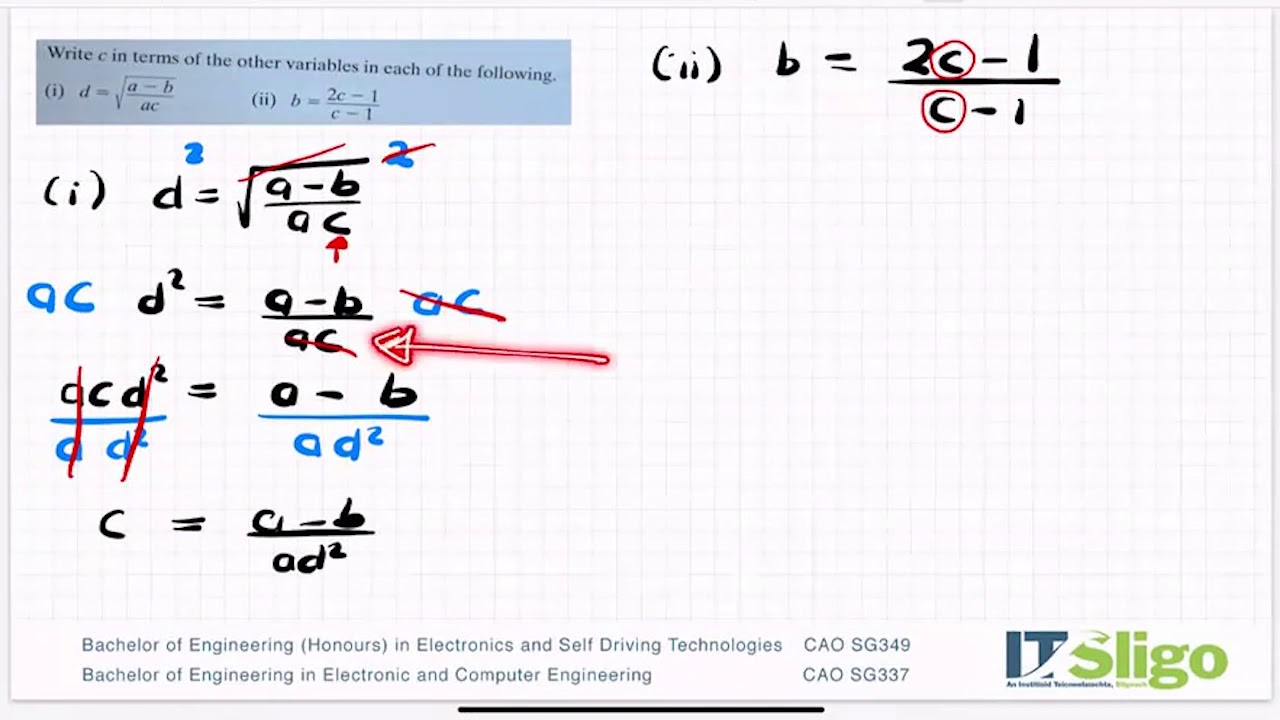 Write c in terms of the other variables in each of the following.
(i) d = √((a − b)/(ac)) (ii) b = (2c − 1)/(c − 1)
(i) d² = √((a − b)/(ac)) ²
ac d² = (a − b)/(ac) ac
acd²/(a d²) = (a − b)/(ad²)
c = (a − b)/(ad²)
(ii) b = (2c − 1)/(c − 1)
Bachelor of Engineering (Honours) in Electronics and Self Driving Technologies CAO SG349
Bachelor of Engineering in Electronic and Computer Engineering CAO SG337
IT Sligo
An Institiúid Teicneolaíochta, Sligeach